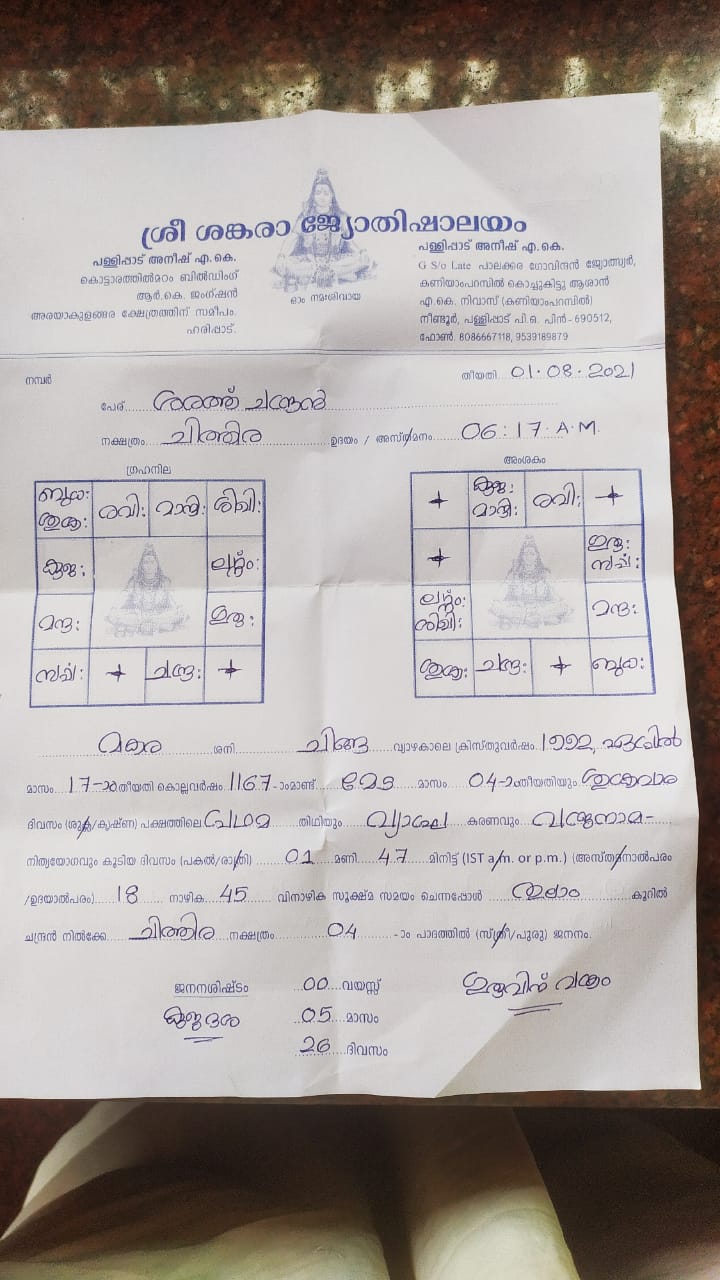 ശ്രീ ശങ്കരാ ജ്യോതിഷാലയം
പള്ളിപ്പാട് അനീഷ് എ.കെ.
കൊട്ടാരത്തിൽമഠം ബിൽഡിംഗ്
ആർ.കെ. ജംഗ്ഷൻ
അരയാകുളങ്ങര ക്ഷേത്രത്തിന് സമീപം.
ഹരിപ്പാട്.
ഓം നമഃശിവായ
പള്ളിപ്പാട് അനീഷ് എ.കെ.
G S/o Late പാലക്കര ഗോവിന്ദൻ ജ്യോത്സ്യർ,
കണിയാംപറമ്പിൽ കൊച്ചുകിട്ടു ആശാൻ
എ.കെ. നിവാസ് (കണിയാംപറമ്പിൽ)
നീണ്ടൂർ, പള്ളിപ്പാട് പി.ഒ. പിൻ-690512,
ഫോൺ: 8086667118, 9539189879
നമ്പർ തീയതി 01.08.2021
പേര് ശരത്ത് ചന്ദ്രൻ
നക്ഷത്രം ചിത്തിര ഉദയം / അസ്തമനം 06:17 A.M.
ഗ്രഹനില
ബുധ: ശുക്ര: രവി: മാന്ദി: ശിഖി:
കുജ: ലഗ്നം:
മന്ദ: ഗുരു:
സർപ്പ: + ചന്ദ്ര: +
അംശകം
+ കുജ: മാന്ദി: രവി: +
+ ഗുരു: സർപ്പ:
ലഗ്നം: ശിഖി: മന്ദ:
ശുക്ര: ചന്ദ്ര: + ബുധ:
മകര ശനി ചിങ്ങ വ്യാഴകാലെ ക്രിസ്തുവർഷം 1992, ഏപ്രിൽ
മാസം 17-ാംതീയതി കൊല്ലവർഷം 1167-ാംമാണ്ട് മേട മാസം 04-ാംതീയതിയും ശുക്രവാര
ദിവസം (ശുക്ല/കൃഷ്ണ) പക്ഷത്തിലെ പ്രഥമ തിഥിയും കരണവും വജ്രനാമ-
നിത്യയോഗവും കൂടിയ ദിവസം (പകൽ/രാത്രി) 01 മണി 47 മിനിട്ട് (IST a/m. or p.m.) (അസ്തമനാൽപരം
/ഉദയാൽപരം) 18 നാഴിക 45 വിനാഴിക സൂക്ഷ്മ സമയം ചെന്നപ്പോൾ തുലാം കൂറിൽ
ചന്ദ്രൻ നിൽക്കേ ചിത്തിര നക്ഷത്രം 04 -ാം പാദത്തിൽ (സ്ത്രീ/പുരു) ജനനം.
ജനനശിഷ്ടം 00 വയസ്സ് ഗുരുവിന് വക്രം
കുജദശ 05 മാസം
26 ദിവസം